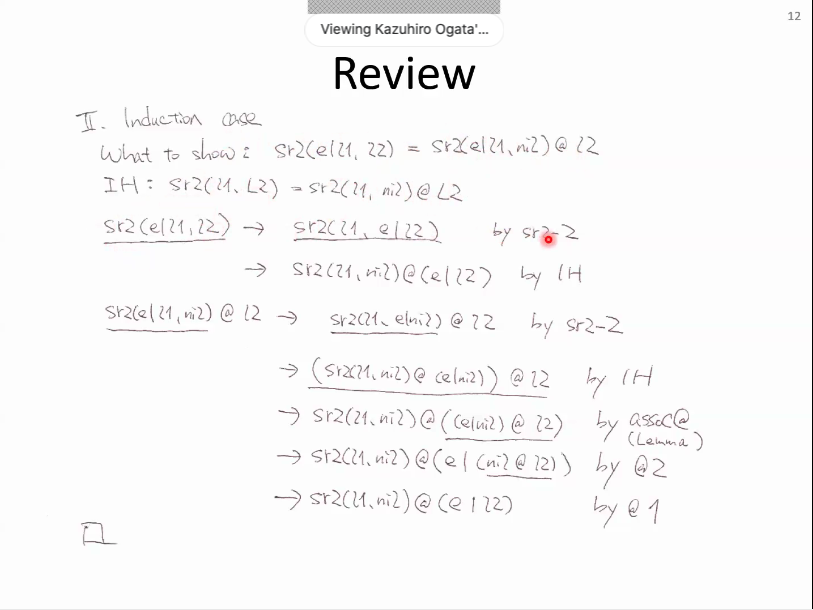 12
Viewing Kazuhiro Ogata'...
Review
II. Induction case
What to show: sr2(e|l1, l2) = sr2(e|l1, nil)@ l2
IH: sr2(l1, L2) = sr2(l1, nil)@L2
sr2(e|l1, l2) → sr2(l1, e|l2) by sr2-2
→ sr2(l1, nil)@(e|l2) by IH
sr2(e|l1, nil)@ l2 → sr2(l1, e|nil)@ l2 by sr2-2
→ (sr2(l1, nil)@(e|nil))@ l2 by IH
→ sr2(l1, nil)@((e|nil)@ l2) by assoc@
(Lemma)
→ sr2(l1, nil)@(e|(nil@ l2)) by @2
→ sr2(l1, nil)@(e|l2) by @1